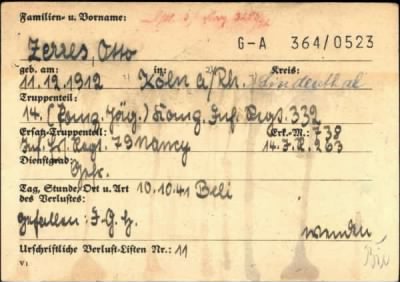 Familien- u. Vorname:
G-A 364/0523
Zerres, Otto
geb. am: in: Kreis:
11.12.1912 Köln a/Rh. Lindenthal
Truppenteil:
14. (Panz. Jäg.) Komp. Inf. Regt. 332
Ersatz-Truppenteil: Erk.-M.: 738
Inf. Ers. Regt. 79 Nancy 14. J.R. 263
Dienstgrad:
Gefr.
Tag, Stunde, Ort u. Art 10.10.41 Beli
des Verlustes:
gefallen: I.G.
wenden
Urschriftliche Verlust-Listen Nr.: 11
V 1